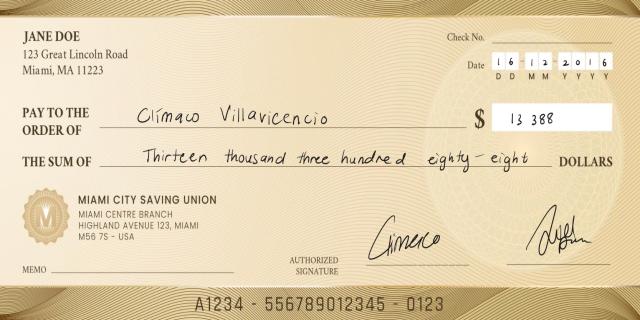 JANE DOE
123 Great Lincoln Road
Miami, MA 11223
Check No.
Date 16-12-2016
D D M M Y Y Y Y
PAY TO THE
ORDER OF Clímaco Villavicencio $ 13 388
THE SUM OF Thirteen thousand three hundred eighty-eight DOLLARS
M
MIAMI CITY SAVING UNION
MIAMI CENTRE BRANCH
HIGHLAND AVENUE 123, MIAMI
M56 7S - USA
MEMO
AUTHORIZED
SIGNATURE
A1234 - 556789012345 - 0123